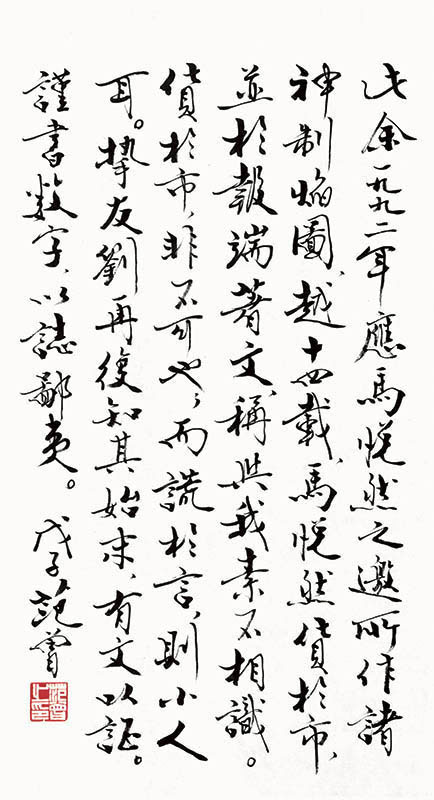 此余一九九二年應馬悅然之邀所作諸
神制焰圖、越十四載、馬悅然貨於市、
並於報端著文、稱與我素不相識。
貨於市、非不可也、而謊於言、則小人
耳。摯友劉再復知其始末、有文以証。
謹書數字、以誌鄙夷。戊子范曾